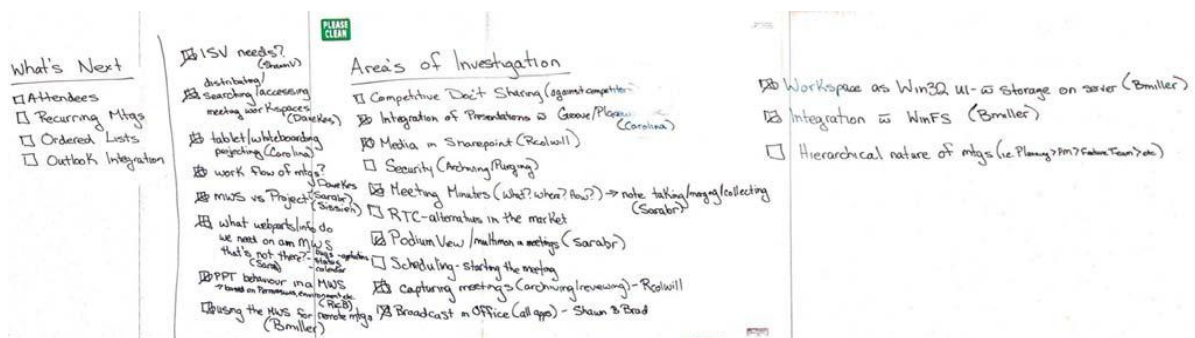 PLEASE
CLEAN
What's Next
Attendees
Recurring Mtgs
Ordered Lists
Outlook Integration
ISV needs?
(ShawnV)
distributing/
searching/accessing
meeting workspaces
(DaveKes)
tablet/whiteboarding
projecting (Carolina)
work flow of mtgs?
DaveKes
MWS vs Project? (Sarabr)
(Sissien)
what webparts/info do
we need on an MWS
that's not there? - bugs - updates
(Sarab) - status
- calendar
PPT behaviour in a MWS
→ based on Permissions, environment etc.
(RicB)
using the MWS for remote mtgs
(Bmiller)
Area's of Investigation
Competitive Doc't Sharing (against competitors
Integration of Presentations w̄ Groove/
(Carolina)
Media in Sharepoint (Rcolwill)
Security (Archiving/Purging)
Meeting Minutes (What? Where? How?) → note taking/merging/collecting
(Sarabr)
RTC-alternatives in the market
Podium View/multimon a meetings (Sarabr)
Scheduling - starting the meeting
capturing meetings (archiving/reviewing) - Rcolwill
Broadcast in Office (all apps) - Shawn & Brad
Workspace as Win32 UI - w̄ storage on server (Bmiller)
Integration w̄ WinFS (Bmiller)
Hierarchical nature of mtgs (i.e. Planning > PM > Feature Team > etc)